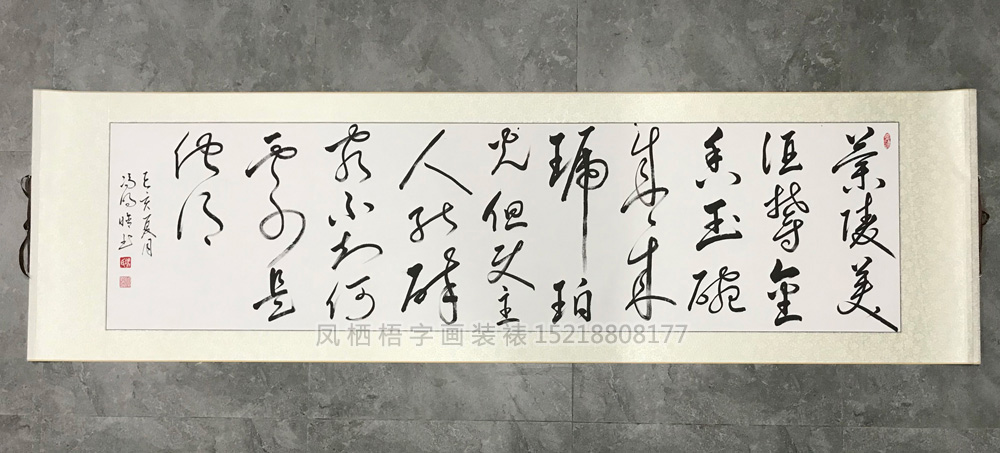 蘭陵美
酒鬱金
香玉碗
盛来
琥珀
光但使主
人能醉
客不知何
處是
他鄉
己亥夏月
冯
书
凤栖梧字画装裱15218808177